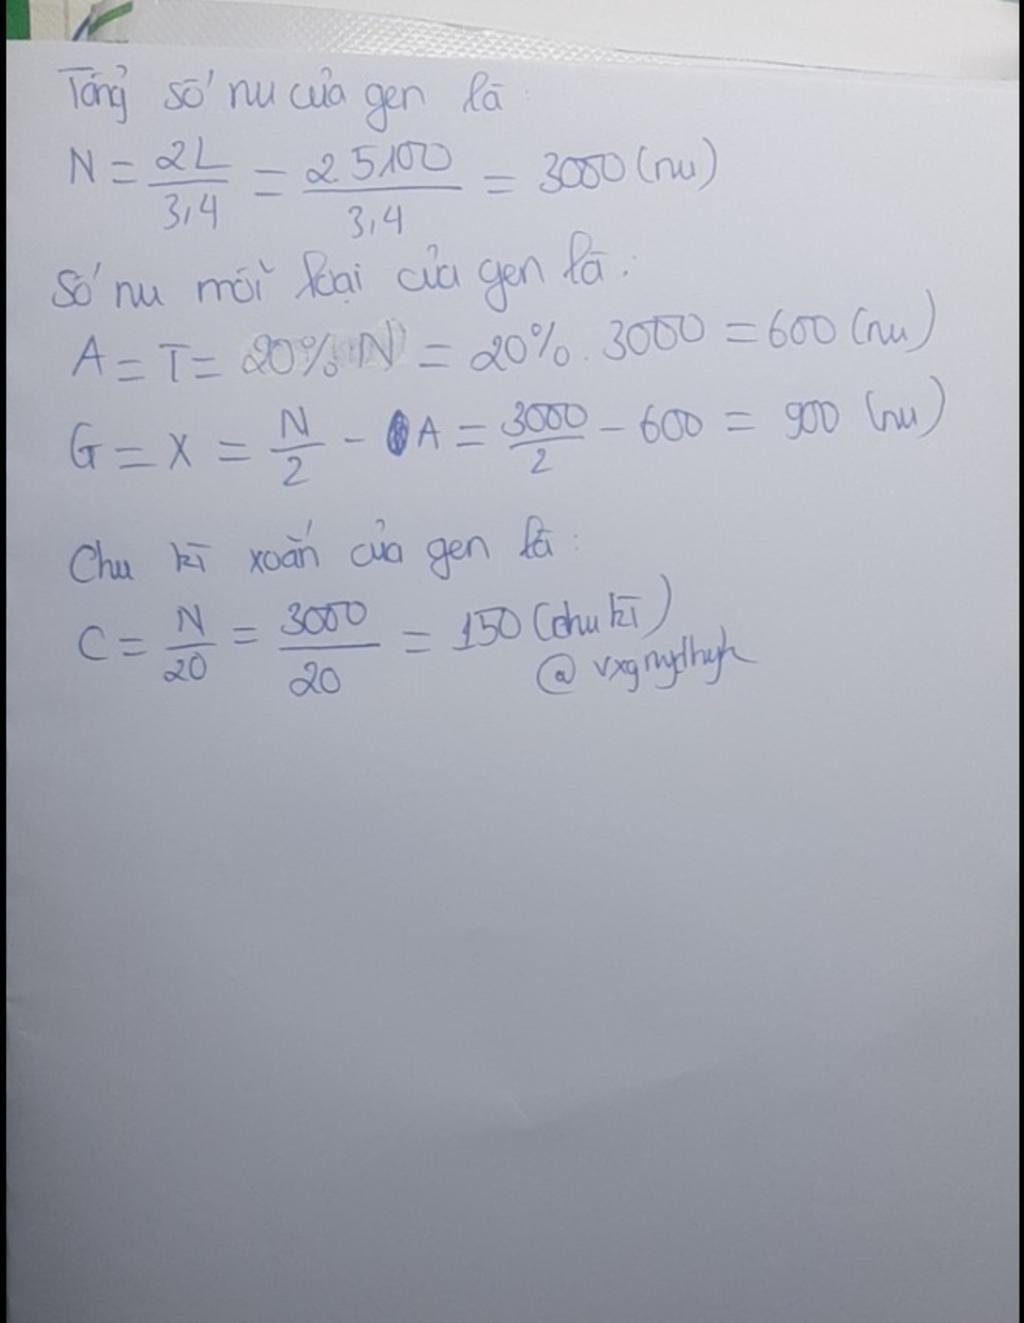 Tổng số nu của gen là:
N = 2L/3,4 = 2.5100/3,4 = 3000 (nu)
Số nu mỗi loại của gen là:
A = T = 20% N = 20%. 3000 = 600 (nu)
G = X = N/2 - A = 3000/2 - 600 = 900 (nu)
Chu kì xoắn của gen là:
C = N/20 = 3000/20 = 150 (chu kì)